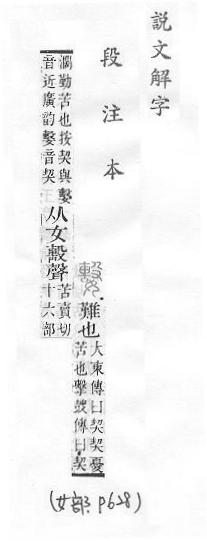 説文解字
段注本
難也大東傳曰契契憂
苦也擊鼓傳曰契
濶勤苦也按契與㜇
音近廣韵㜇音契
从女毄聲苦賣切
十六部
(女部 P628)